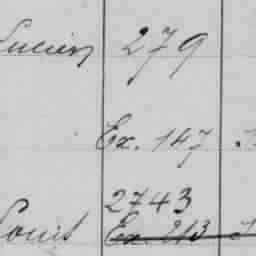 Lucien 279
Ex. 147
2743
Louis Ex. 213